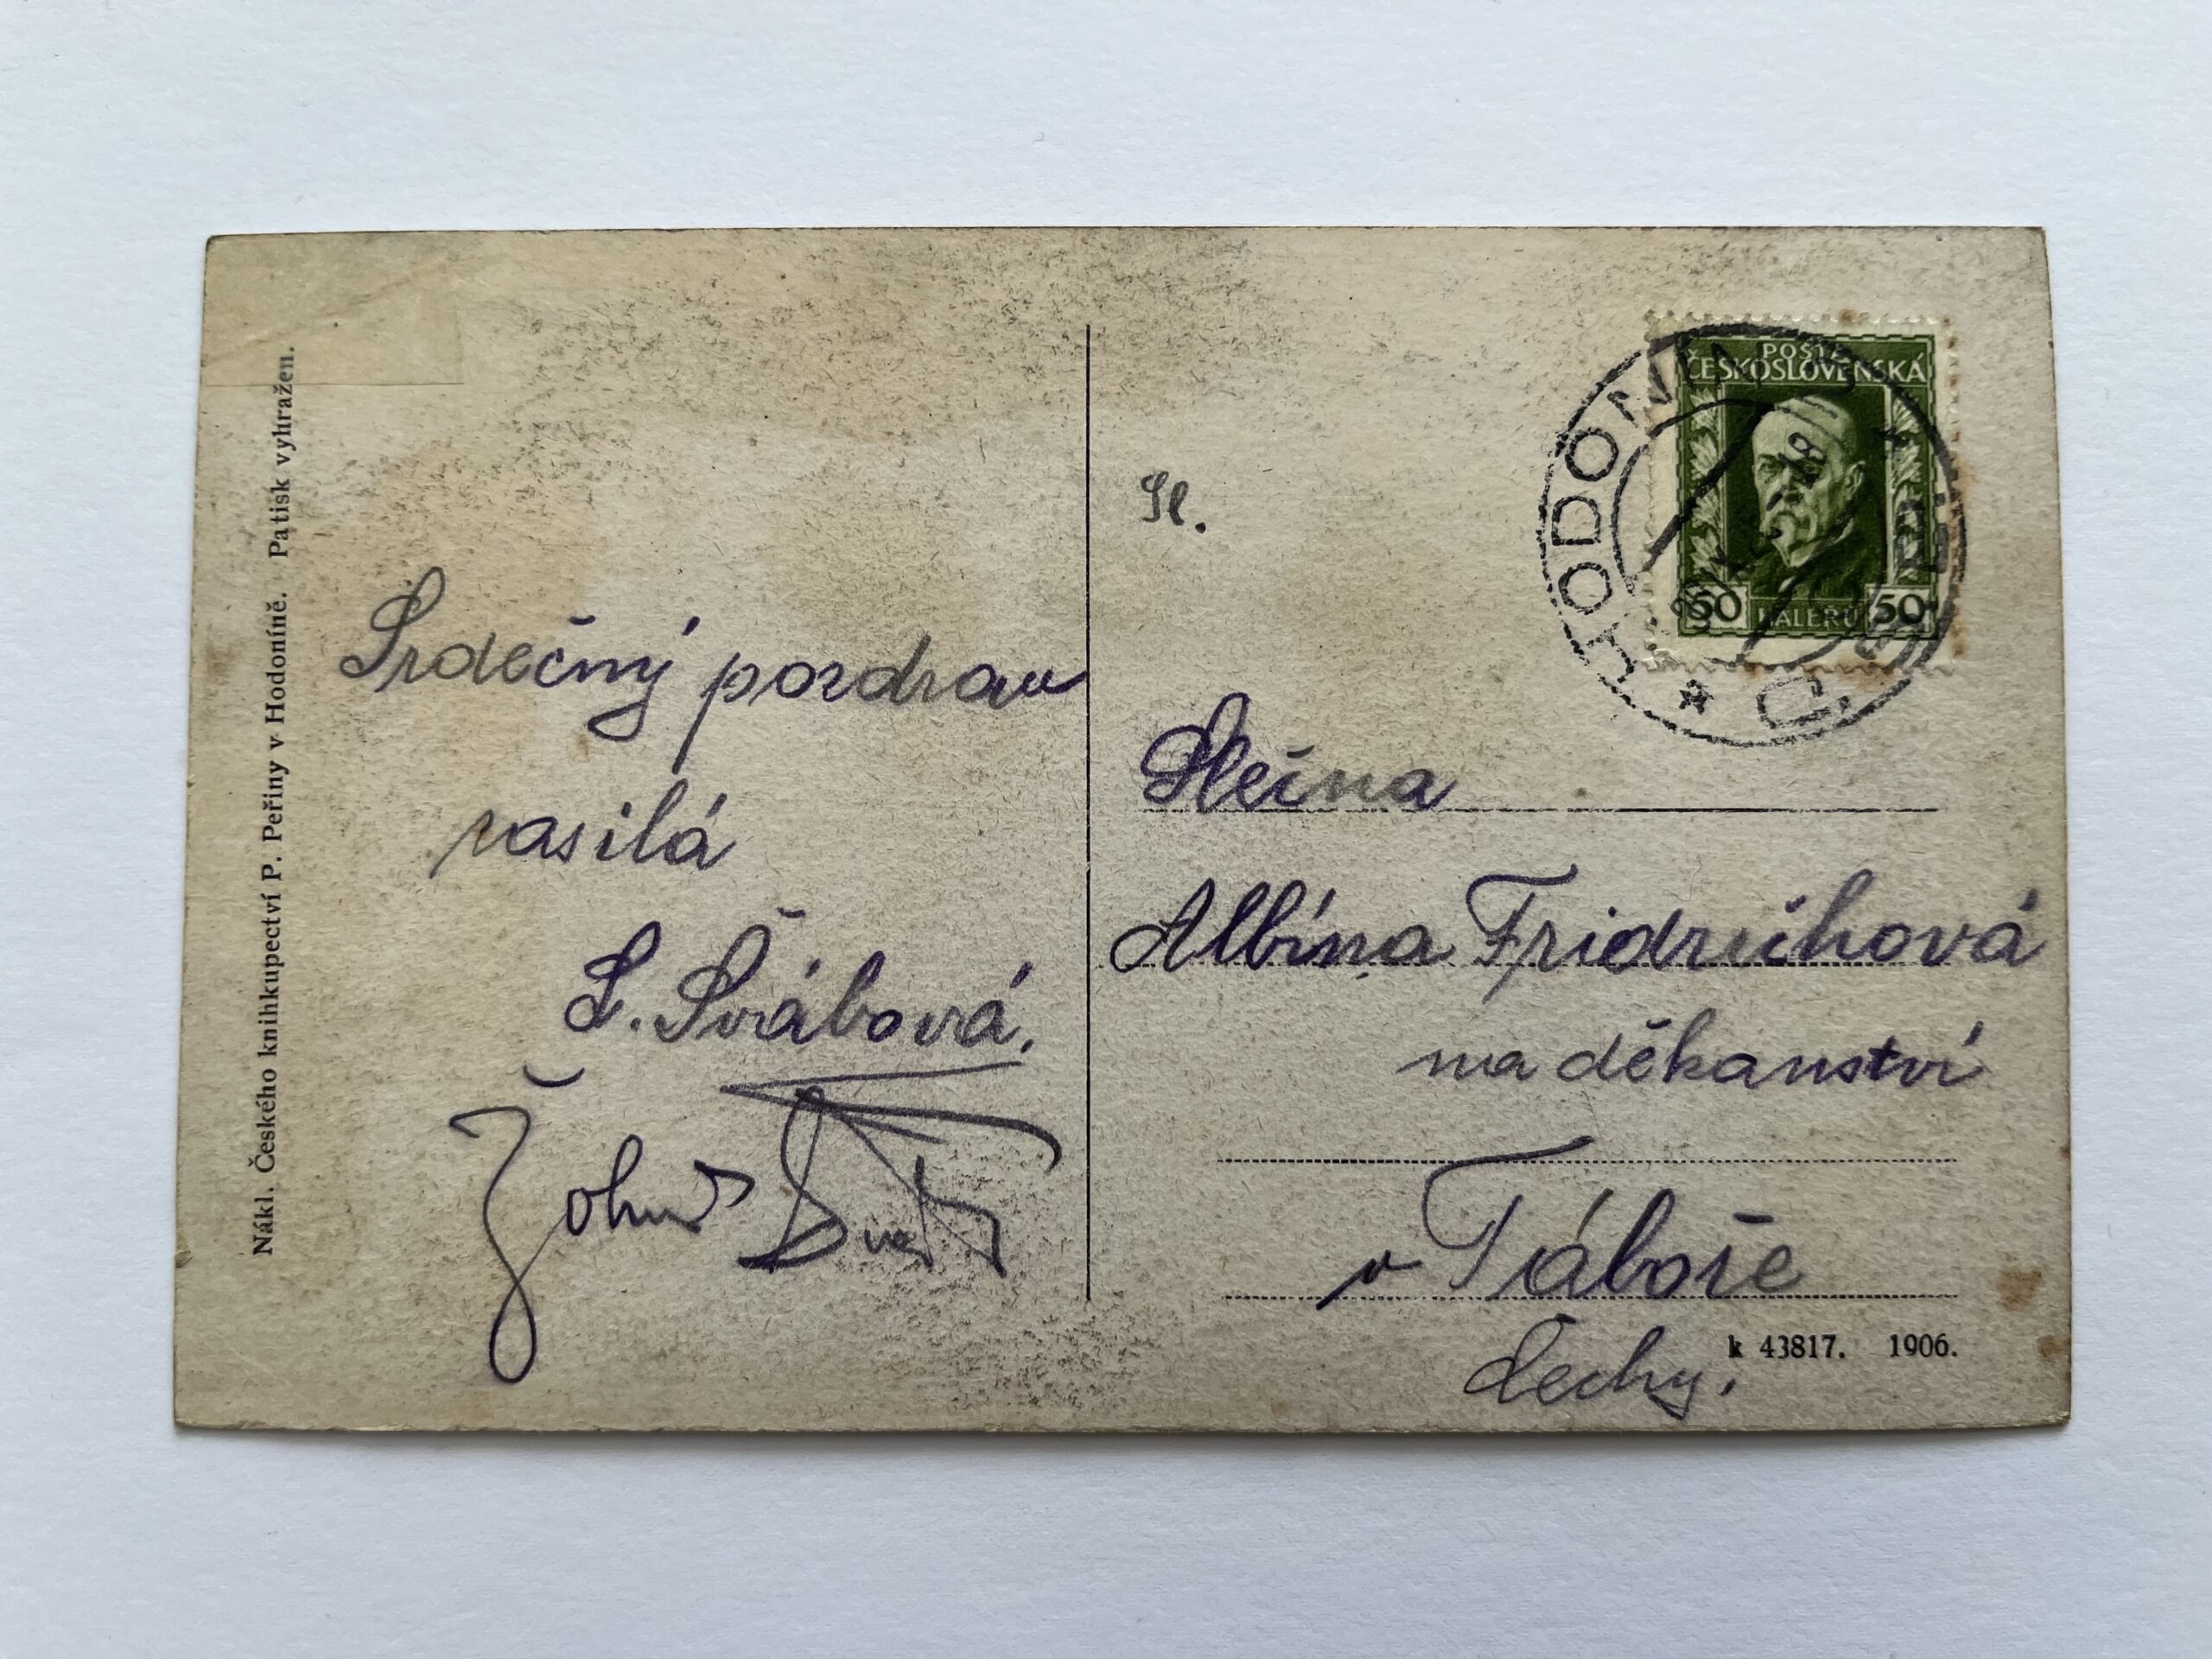 Nákl. Českého knihkupectví P. Peřiny v Hodoníně. Patisk vyhražen.
Srdečný pozdrav
zasílá
Švábová.
Sl.
POŠTA
ČESKOSLOVENSKÁ
50 HALÉŘŮ 50
HODONÍN
Slečna
Albína Fridrichová
na děkanství
v Táboře
Čechy.
k 43817. 1906.